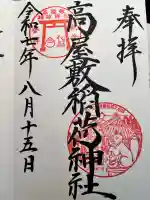 奉拝
高屋敷稲荷神社
令和七年八月十五日